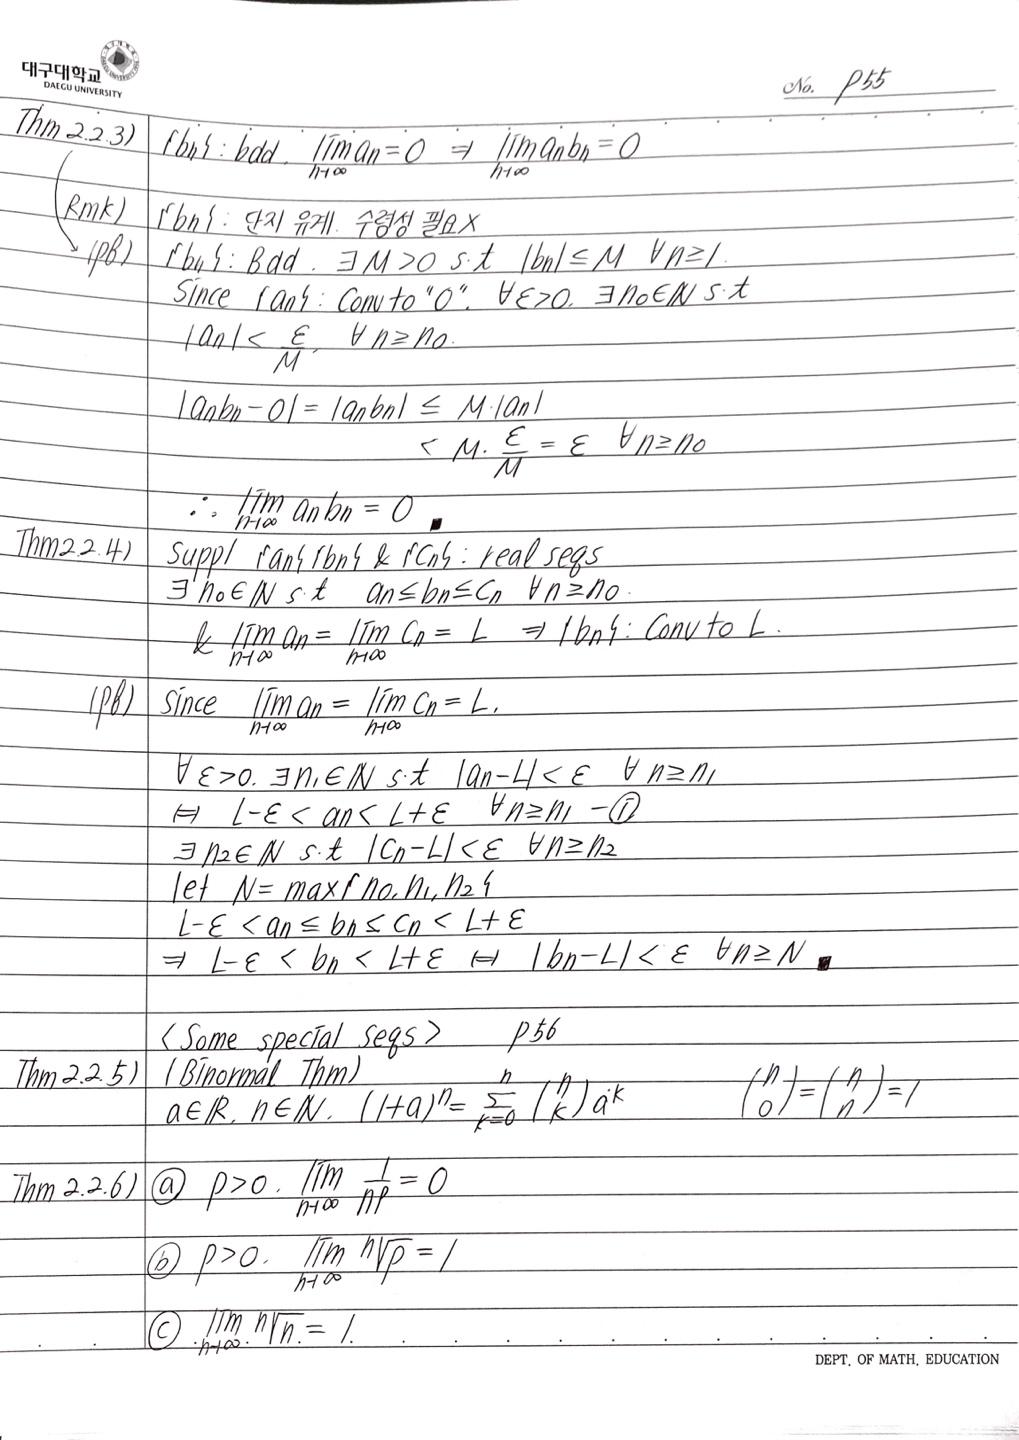 대구대학교
DAEGU UNIVERSITY
No. P55
Thm 2.2.3) {bn}: bdd. lim an=0 ⇒ lim anbn=0
n→∞ n→∞
Rmk) {bn}: 단지 유계. 수렴성 필요X
(pf) {bn}: Bdd. ∃M>0 s.t |bn|≤M ∀n≥1.
Since {an}: Conv to "0". ∀ε>0. ∃n0∈ℕ s.t
|an|< ε/M, ∀n≥n0.
|anbn-0|=|anbn| ≤ M·|an|
< M. ε/M = ε ∀n≥n0
∴ lim anbn = 0 ∎
n→∞
Thm 2.2.4) suppl {an}{bn} & {Cn}: real seqs
∃n0∈ℕ s.t an≤bn≤Cn ∀n≥n0.
& lim an = lim Cn = L ⇒ {bn}: Conv to L.
n→∞ n→∞
(pf) since lim an = lim Cn = L.
n→∞ n→∞
∀ε>0. ∃n1∈ℕ s.t |an-L|<ε ∀n≥n1
⇔ L-ε < an < L+ε ∀n≥n1 -①
∃n2∈ℕ s.t |Cn-L|<ε ∀n≥n2
let N = max{n0, n1, n2}
L-ε < an ≤ bn ≤ Cn < L+ε
⇒ L-ε < bn < L+ε ⇔ |bn-L|<ε ∀n≥N ∎
<Some special seqs> P56
Thm 2.2.5) (Binormal Thm)
a∈ℝ. n∈ℕ. (1+a)^n = Σ_{k=0}^{n} (n k) a^k (n 0)=(n n)=1
Thm 2.2.6) ⓐ p>0. lim 1/n^p = 0
n→∞
ⓑ p>0. lim ⁿ√p = 1
n→∞
ⓒ lim ⁿ√n = 1.
n→∞
DEPT. OF MATH. EDUCATION